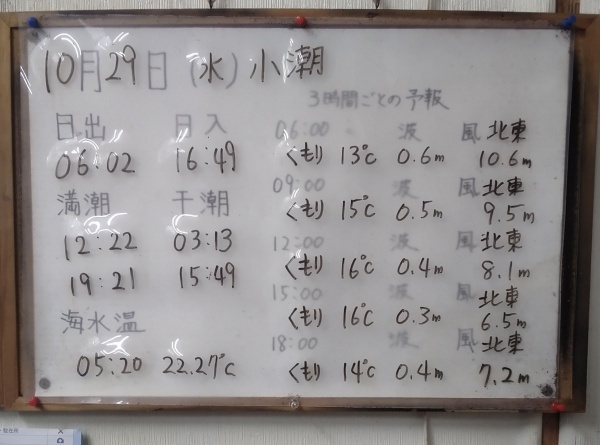 10月29日(水)小潮
3時間ごとの予報
日出 日入
06:02 16:49
満潮 干潮
12:22 03:13
19:21 15:49
海水温
05:20 22.27℃
06:00 波 風 北東
くもり 13℃ 0.6m 10.6m
09:00 波 風 北東
くもり 15℃ 0.5m 9.5m
12:00 波 風 北東
くもり 16℃ 0.4m 8.1m
15:00 波 風 北東
くもり 16℃ 0.3m 6.5m
18:00 波 風 北東
くもり 14℃ 0.4m 7.2m